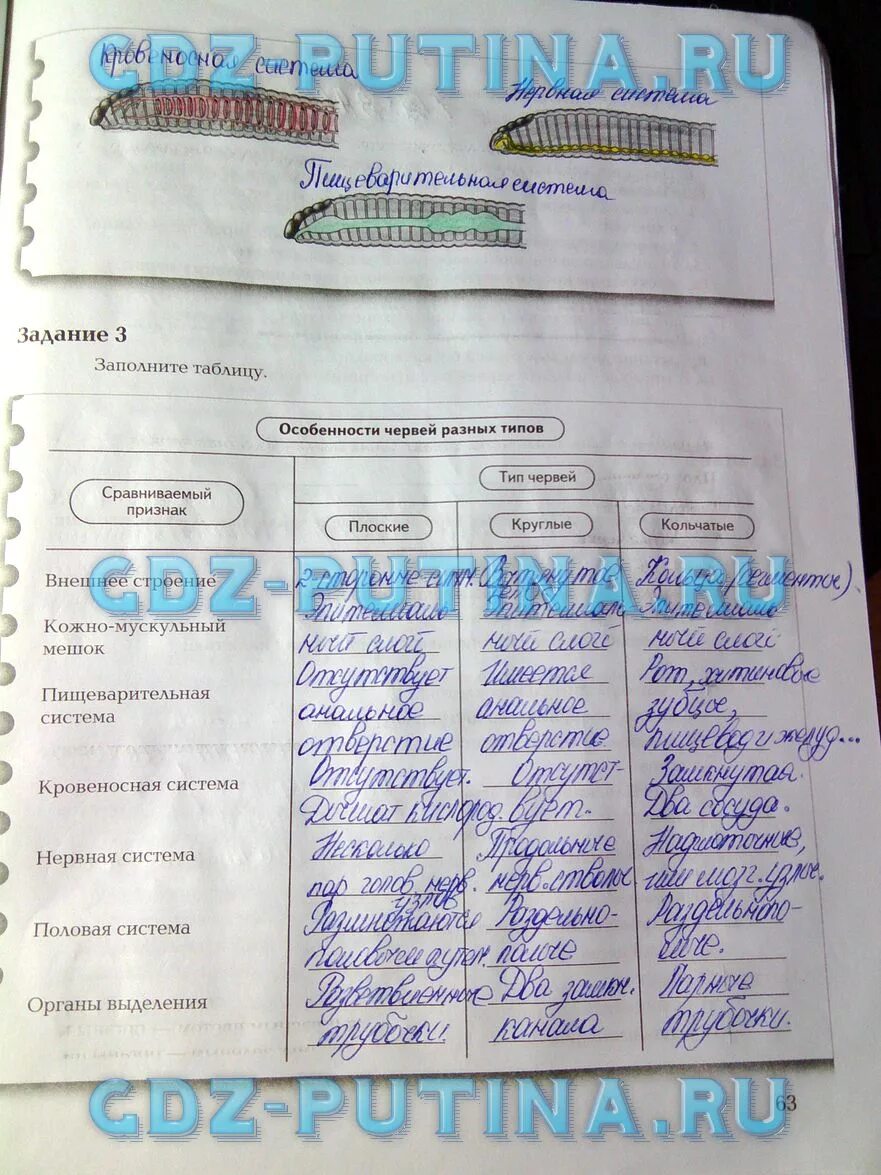 GDZ-PUTINA.RU
Кровеносная система
Нервная система
Пищеварительная система
Задание 3
Заполните таблицу.
Особенности червей разных типов
Сравниваемый признак
Тип червей
Плоские
Круглые
Кольчатые
GDZ-PUTINA.RU
Внешнее строение
2-сторонне
Вытянутое
Кольца (сегменты).
Кожно-мускульный
мешок
Эпителиаль-
ный слой
Эпителиаль
ный слой
Эпителиаль
ный слой
Пищеварительная
система
Отсутствует
анальное
отверстие
Имеется
анальное
отверстие
Рот, хитиновые
зубцы,
пищевод и желуд...
Кровеносная система
Отсутствует.
Дышат кислород.
Отсутст-
вует.
Замкнутая.
Два сосуда.
Нервная система
Несколько
пар голов. нерв.
узлов
Продольные
нерв. стволы
Надглоточные,
или мозг. узлы.
Половая система
Размножаются
половым путем.
Раздельно-
полые
Раздельнопо-
лые.
Органы выделения
Разветвленные
трубочки.
Два замкн.
канала
Парные
трубочки.
GDZ-PUTINA.RU
63